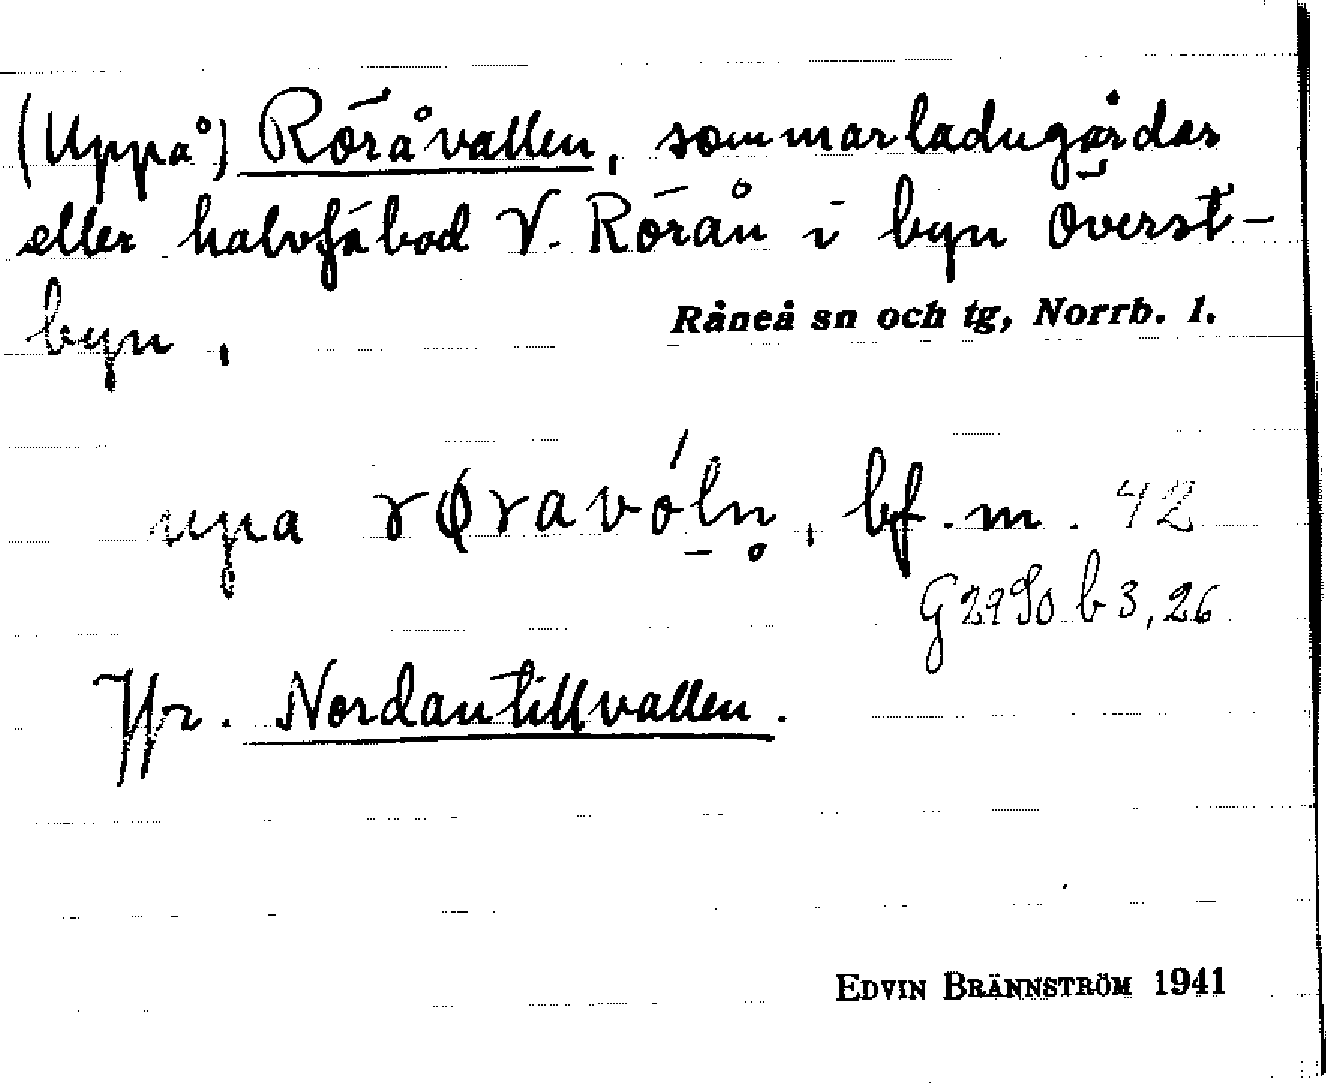 (Uppå) Röråvallen, sommarladugårdar
eller halvfäbod V. Rörån i byn Överst-
byn,
Råneå sn och tg, Norrb. l.
upa røravóln̥, bf. m. 42
G 2990 b 3, 26
Jfr. Nordantillvallen.
EDVIN BRÄNNSTRÖM 1941